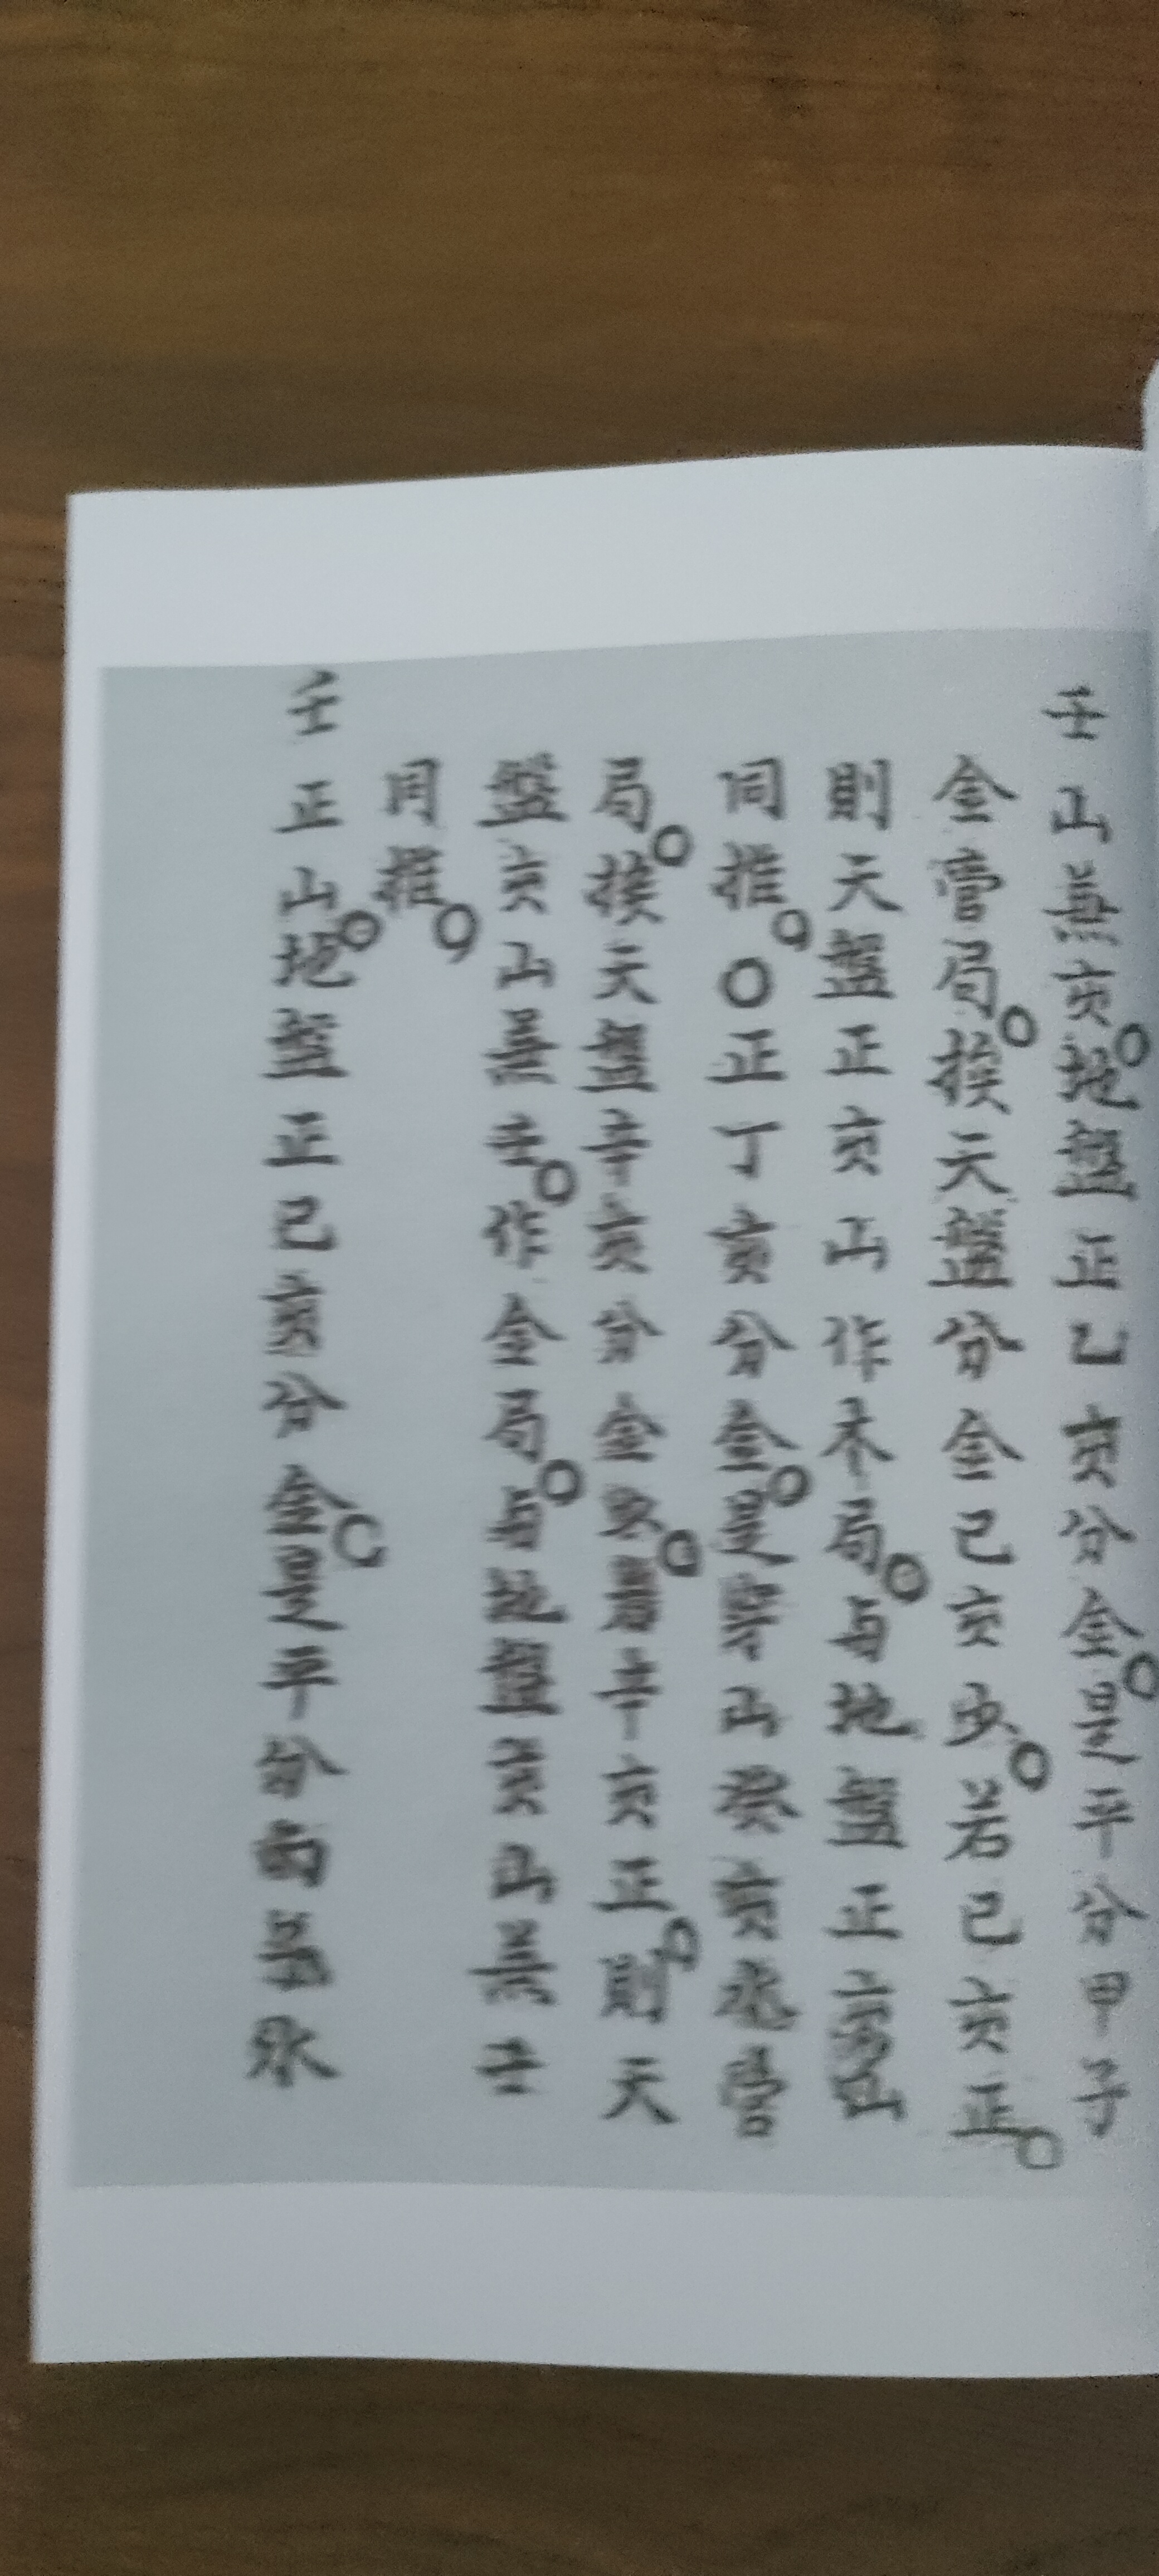 壬山兼亥。地盤正乙亥分金。是平分甲子
金管局。挨天盤分金己亥步。若己亥正。
則天盤正亥山作木局。与地盤正亥山
同推。〇正丁亥分金。是穿山癸亥水管
局。挨天盤辛亥分金步。若辛亥正。則天
盤亥山兼壬。作金局。与地盤亥山兼壬
同推。
壬正山。地盤正己亥分金。是平分丙子水